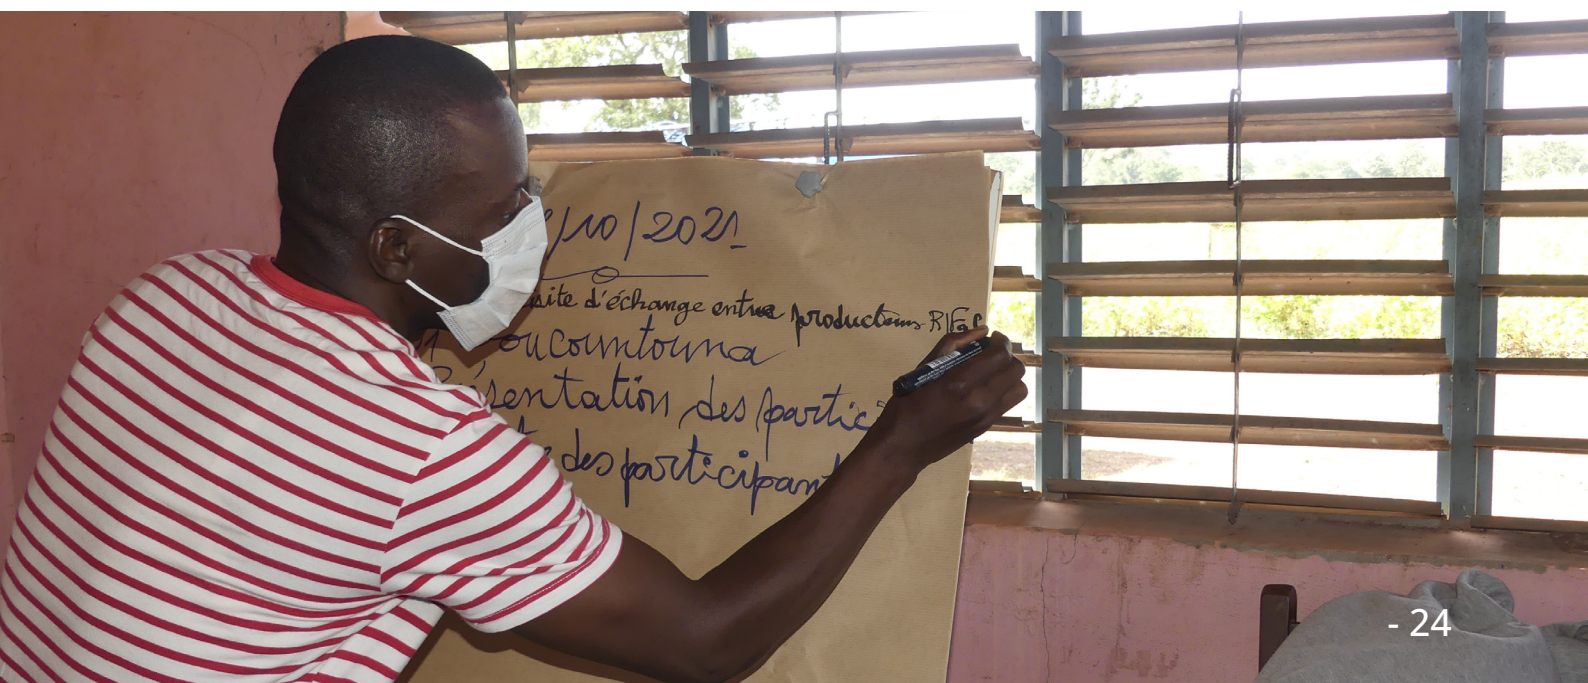 /10/2021
site d'échange entre producteurs
oucountouna
sentation des partic
des participant
- 24